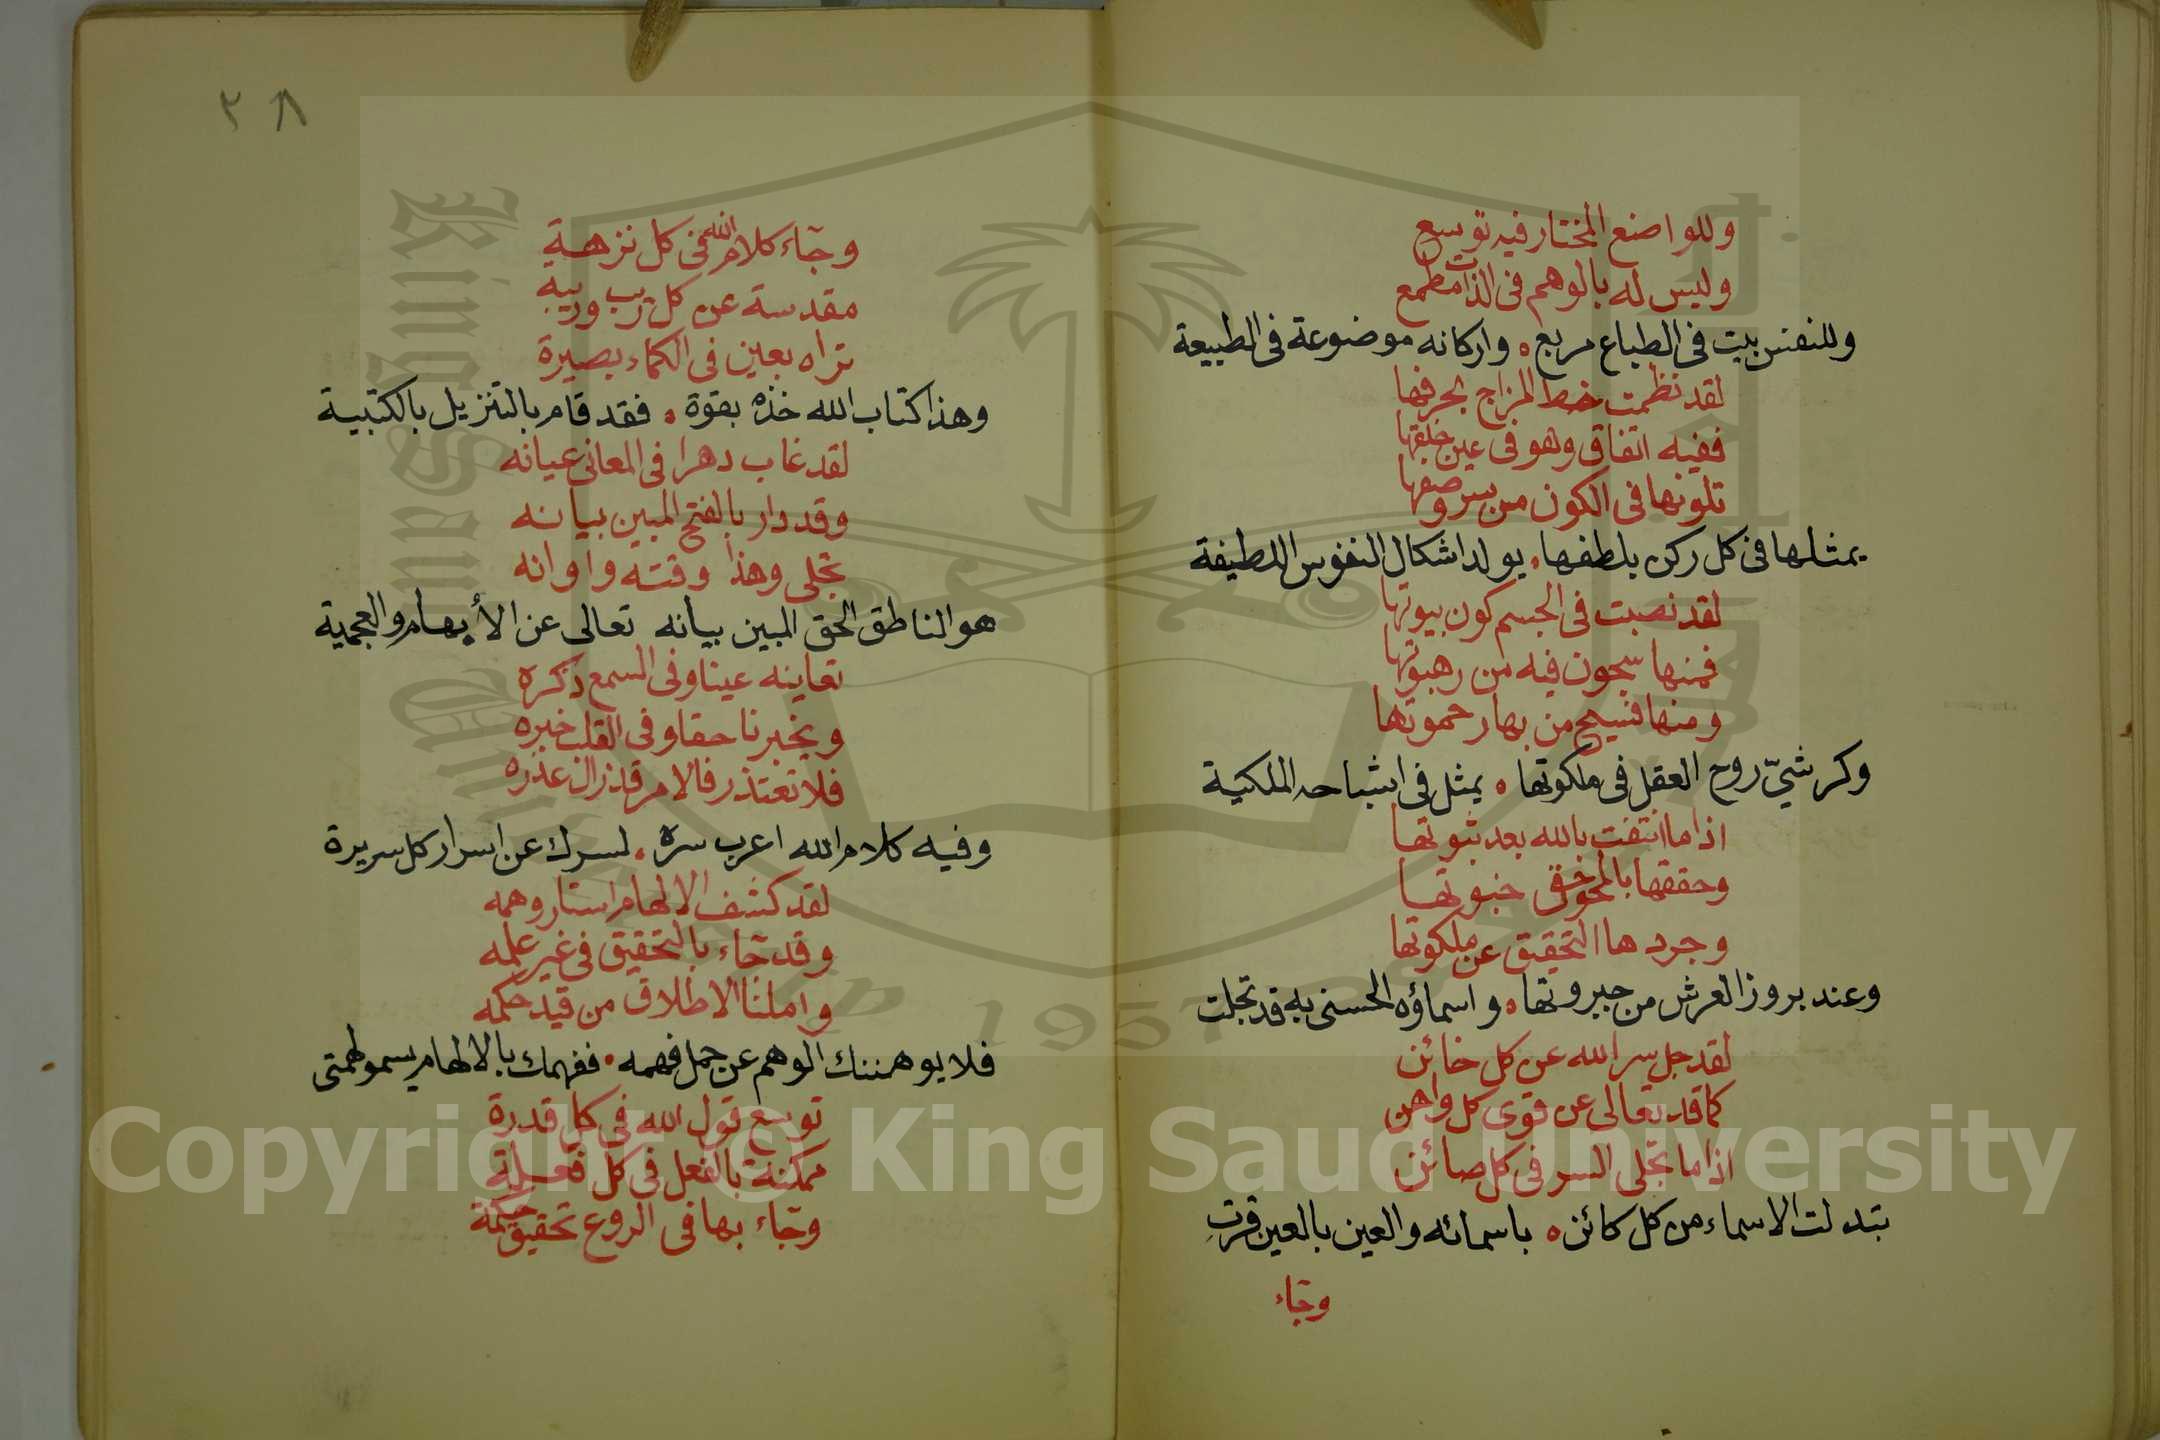 وللواضع المختار فيه توسع
وليس له بالوهم فى الذات مطمع
وللنفس بيت فى الطباع مربع ٥ واركانه موضوعة فى الطبيعة
لقد نظمت خط المزاج بحرفها
ففيه اتفاق وهو فى عين خلفها
تلونها فى الكون من سر وصفها
يمثلها فى كل ركن بلطفها ٠ يولد اشكال النفوس اللطيفة
لقد نصبت فى الجسم كون بيوتها
فمنها سجون فيه من رهبوتها
ومنها فسيح من بها رحموتها
وكرشيّ روح العقل فى ملكوتها ٥ يمثل فى اشباحه الملكية
اذا ما انتفت بالله بعد ثبوتها
وحققها بالمحو
وجردها التحقيق عن ملكوتها
وعند بروز العرش من جبروتها ٥ واسماؤه الحسنى به قد تجلت
لقد جل سر الله عن كل خائن
كما قد تعالى عن قوى كل واهن
اذا ما تجلى السر فى كل صائن
بتدلت الاسماء من كل كائن ٥ باسمائه والعين بالعين قرت
وجاء
٢٨
وجاء كلام الله فى كل نزهة
مقدسة عن كل ريب وريبه
تراه بعين فى الكماء بصيرة
وهذا كتاب الله خذه بقوة ٠ فقد قام بالتنزيل بالكتبية
لقد غاب دهرا فى المعانى عيانه
وقد دار بالفتح المبين بيانه
تجلى وهذا وقته واوانه
هو الناطق الحق المبين بيانه تعالى عن الأيهام والعجمية
تعاينه عينا وفى السمع ذكره
ويخبرنا حقا وفى القلب خبره
فلا تعتذر فالامر قد زال عذره
وفيه كلام الله اعرب سره ٠ لسرك عن اسرار كل سريرة
لقد كشف الالهام استار وهمه
وقد جاء بالتحقيق فى غير علمه
واملنا الاطلاق من قيد حكمه
فلا يوهمننك الوهم عن جمل فهمه ٠ ففهمك بالالهام يسمو لهمتى
توسع قول الله فى كل قدرة
ممكنة بالفعل فى كل فعلة
وجاء بها فى الروع تحقيق حكمة
Copyright © King Saud University
King Saud University
1957